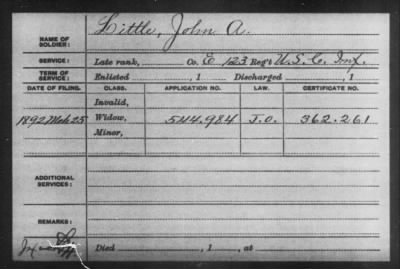 NAME OF SOLDIER: Little, John A.
SERVICE: Late rank, Co. E 123 Reg't U.S.C. Inf.
TERM OF SERVICE: Enlisted , 1 Discharged , 1
DATE OF FILING. CLASS. APPLICATION NO. LAW. CERTIFICATE NO.
Invalid,
1892 Mch 25 Widow, 544.984 J.O. 362.261
Minor,
ADDITIONAL SERVICES:
REMARKS:
Died , 1 , at